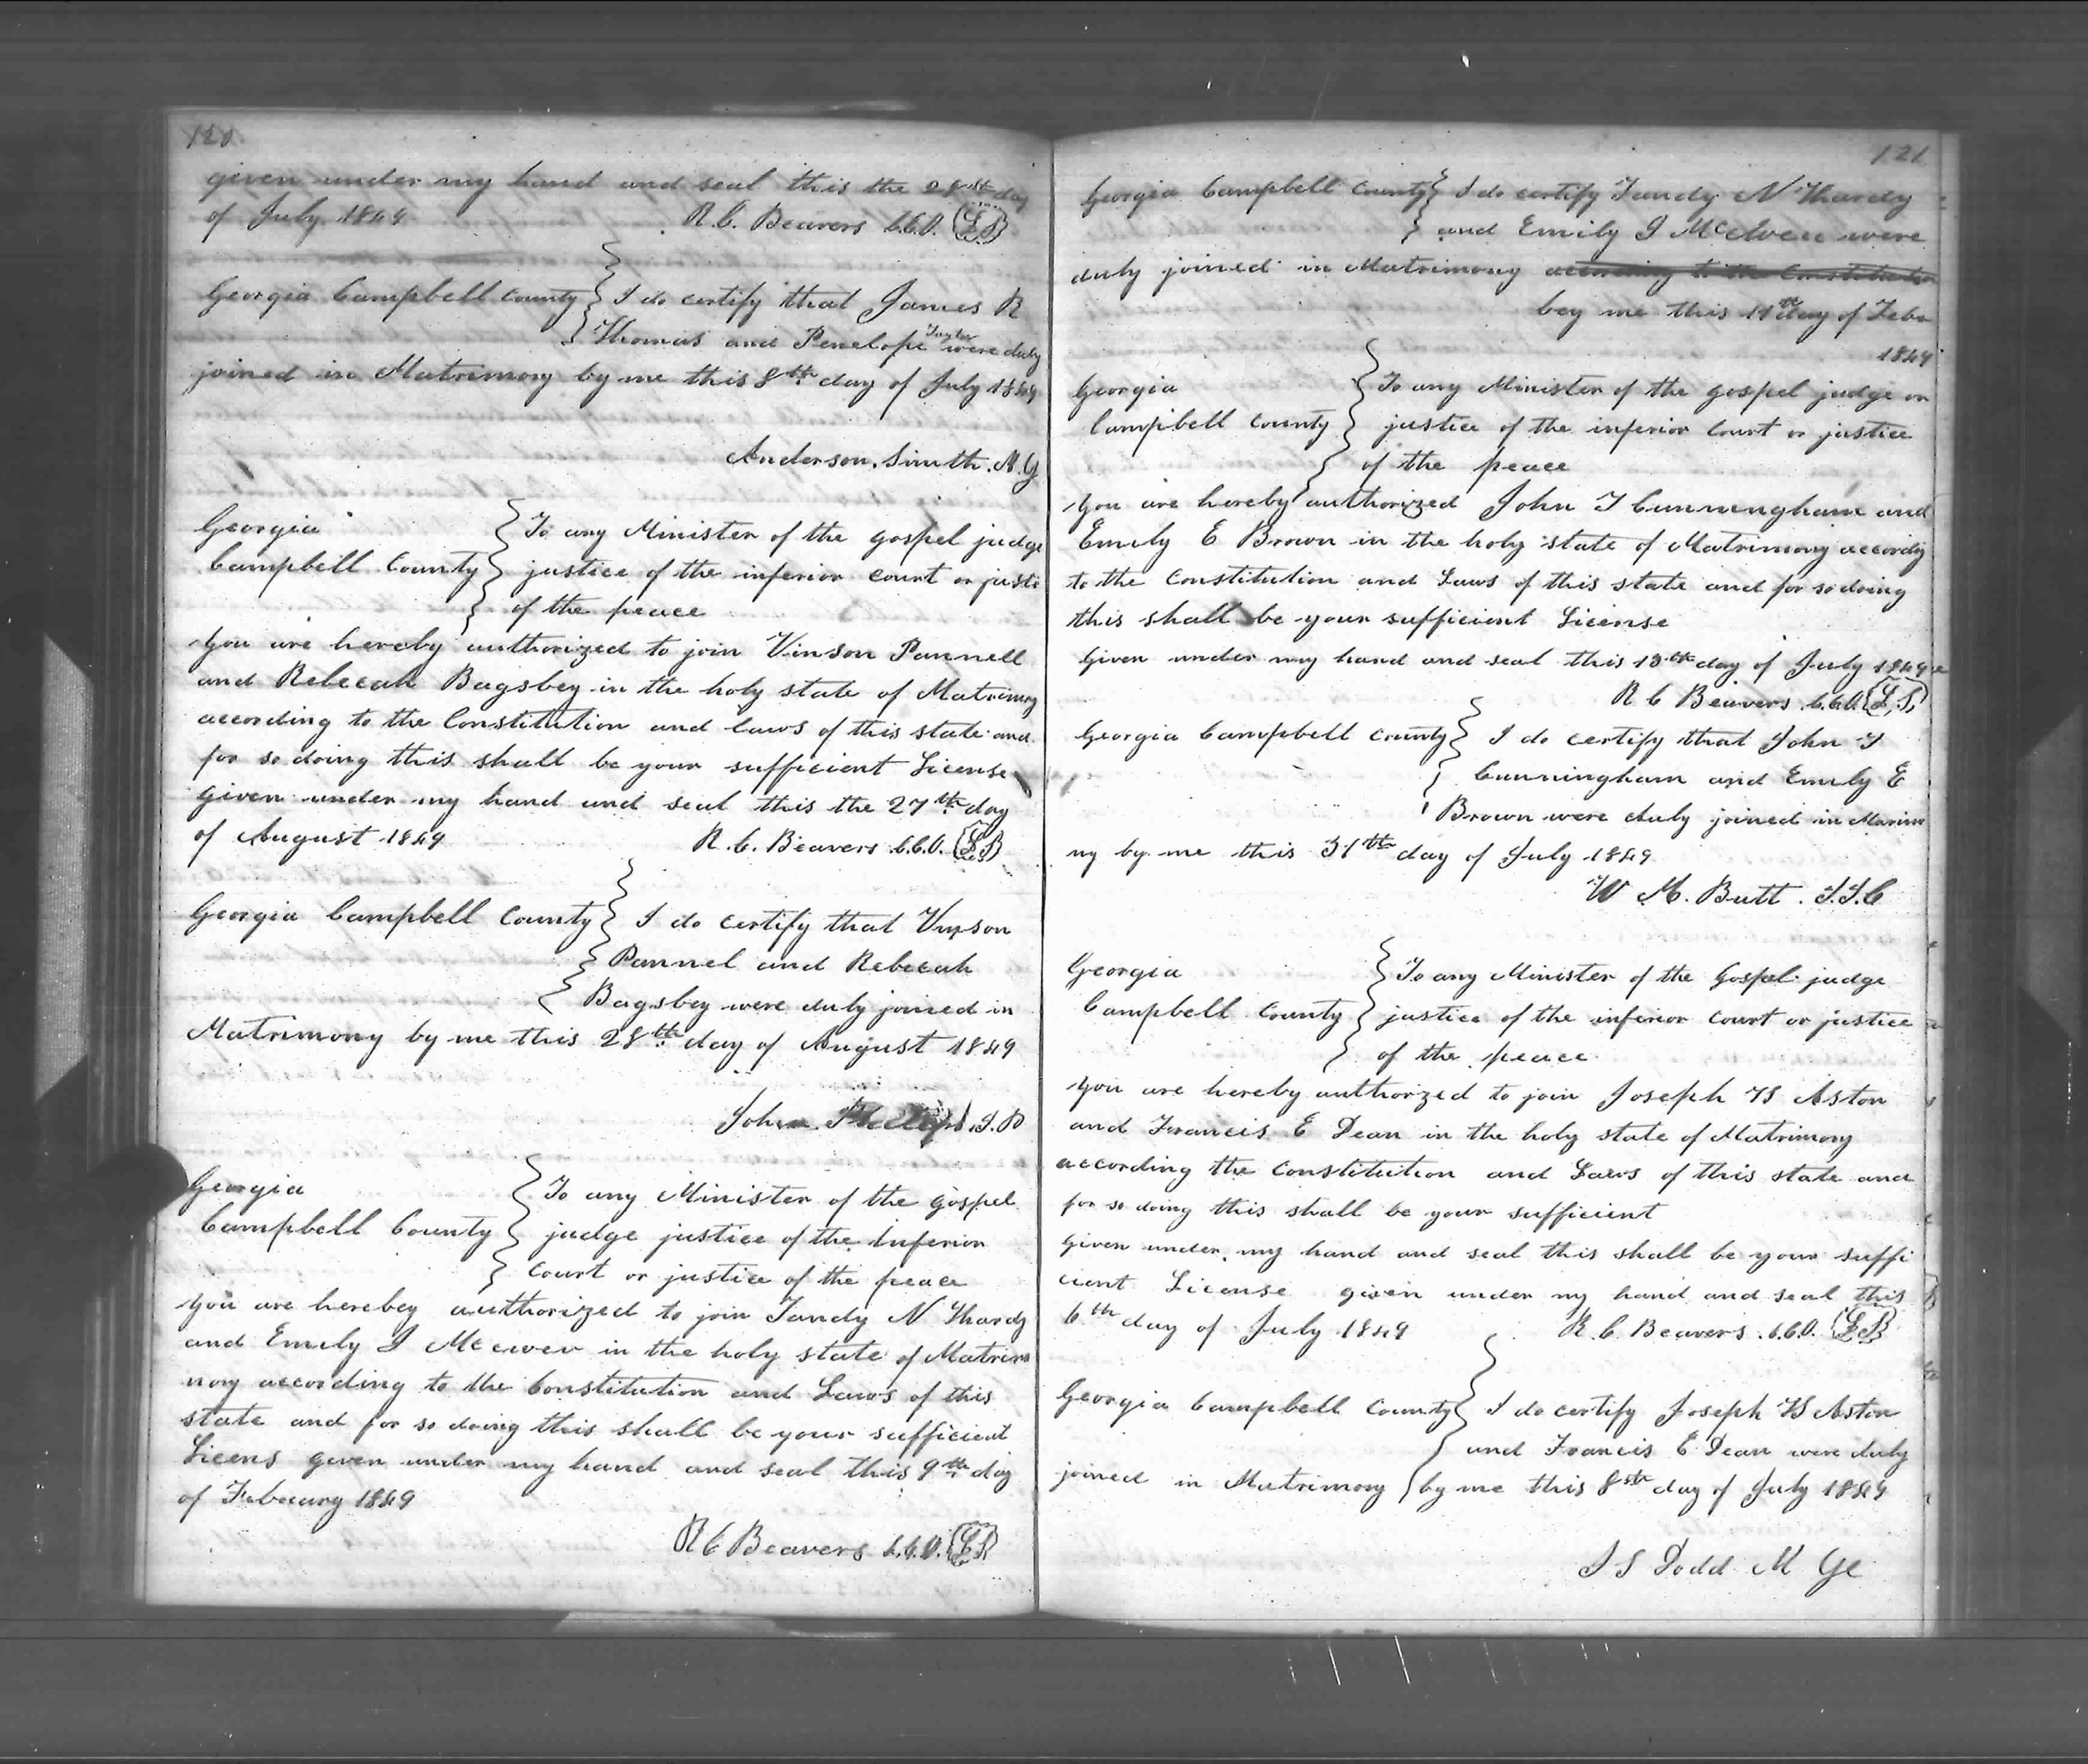 120
given under my hand and seal this the 28st day
of July 1849 R. C. Beavers C.C.O. L.S
Georgia Campbell County I do certify that James R
Thomas and Penelope Taylor were duly
joined in Matrimony by me this 8th day of July 1849
Anderson Smith. M. G
Georgia To any Minister of the gospel judge
Campbell County justice of the inferior court or justi
of the peace
you are hereby authorized to join Vinson Pannell
and Rebecah Bagsbey in the holy state of Matrimony
according to the Constitution and laws of this state and
for so doing this shall be your sufficient License
given under my hand and seal this the 27th day
of August 1849 R. C. Beavers C.C.O. L.S
Georgia Campbell County I do certify that Vinson
Pannel and Rebecah
Bagsbey were duly joined in
Matrimony by me this 28th day of August 1849
John J.P
Georgia To any Minister of the gospel
Campbell County judge justice of the Inferior
Court or justice of the peace
you are herebey authorized to join Tandy N Hardy
and Emily J McEwen in the holy state of Matrimo
nory according to the Constitution and Laws of this
state and for so doing this shall be your sufficient
Licens given under my hand and seal this 9th day
of Febuary 1849
R C Beavers C.C.O. L.S
121
Georgia Campbell County I do certify Tandy N Hardy
and Emily J were
duly joined in Matrimony according to the Constitution
bey me this 11th day of Feb
1849
Georgia To any Minister of the gospel judge or
Campbell County justice of the inferior Court or justice
of the peace
you are hereby authorized John T Cunningham and
Emily E Brown in the holy state of Matrimony accordig
to the Constitution and Laws of this state and for so doing
this shall be your sufficient License
Given under my hand and seal this 13th day of July 1849
R C Beavers C.C.O. L.S.
Georgia Campbell County I do certify that John T
Cunningham and Emily E
Brown were duly joined in
ny by me this 31th day of July 1849
W M. Butt. J.I.C
Georgia To any Minister of the Gospel judge
Campbell County justice of the inferior court or justice
of the peace
you are hereby authorzed to join Joseph W Aston
and Francis E Dean in the holy state of Matrimony
according the Constitution and Laws of this state and
for so doing this shall be your sufficient
Given under my hand and seal this shall be your suffi
cient License given under my hand and seal this
6th day of July 1849 R. C Beavers. C.C.O. L.S
Georgia Campbell County I do certify Joseph W Aston
and Francis E Dean were duly
joined in Matrimony by me this 8th day of July 1849
J S Dodd M Ge